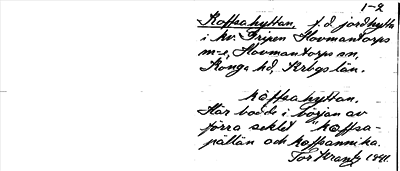 1-2
Koffsahyttan, f.d. jordhytta
i kv. Gripen Hovmantorps
m-e, Hovmantorps sn,
Konga hd, Krbgs län.
Koffsahyttan.
Här bodde i början av
förra seklet Koffsa-
pällän och Koffsannika.
Tor Krantz 1941.